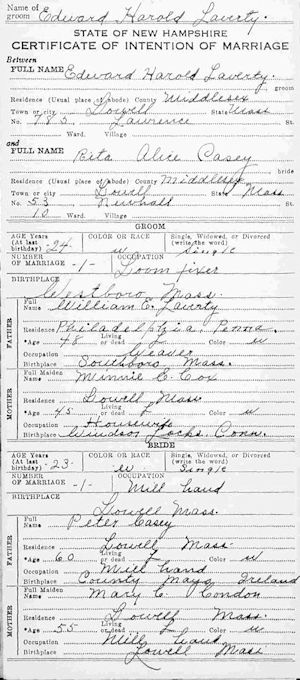 Name of groom Edward Harold Laverty.
STATE OF NEW HAMPSHIRE
CERTIFICATE OF INTENTION OF MARRIAGE
Between
FULL NAME Edward Harold Laverty.
groom
Residence (Usual place of abode) County Middlesex
Town or city Lowell State Mass
No. 785 Lawrence St.
Ward. Village
and
FULL NAME Rita Alice Casey
bride
Residence (Usual place of abode) County Middlesex
Town or city Lowell State Mass
No. 53 St.
10 Ward. Village
GROOM
AGE Years (At last birthday) -24- COLOR OR RACE w Single, Widowed, or Divorced (write the word) Single
NUMBER OF MARRIAGE -1- OCCUPATION Loom fixer
BIRTHPLACE
Westboro Mass.
FATHER
Full Name William E. Laverty
Residence Philadelphia, Penna.
*Age 48 Living or dead L Color w
Occupation Weaver
Birthplace Southboro Mass.
MOTHER
Full Maiden Name Minnie E. Cox
Residence Lowell Mass.
*Age 45 Living or dead L Color w
Occupation Housewife
Birthplace Windsor Locks, Conn.
BRIDE
AGE Years (At last birthday) -23- COLOR OR RACE w Single, Widowed, or Divorced (write the word) Single
NUMBER OF MARRIAGE -1- OCCUPATION Mill hand
BIRTHPLACE
Lowell Mass.
FATHER
Full Name Peter Casey
Residence Lowell Mass.
*Age 60 Living or dead L Color w
Occupation Mill hand
Birthplace County Mayo, Ireland
MOTHER
Full Maiden Name Mary C. Condon
Residence Lowell Mass.
*Age 55 Living or dead L Color w
Occupation Mill hand
Birthplace Lowell Mass
*If deceased state age at time of death.